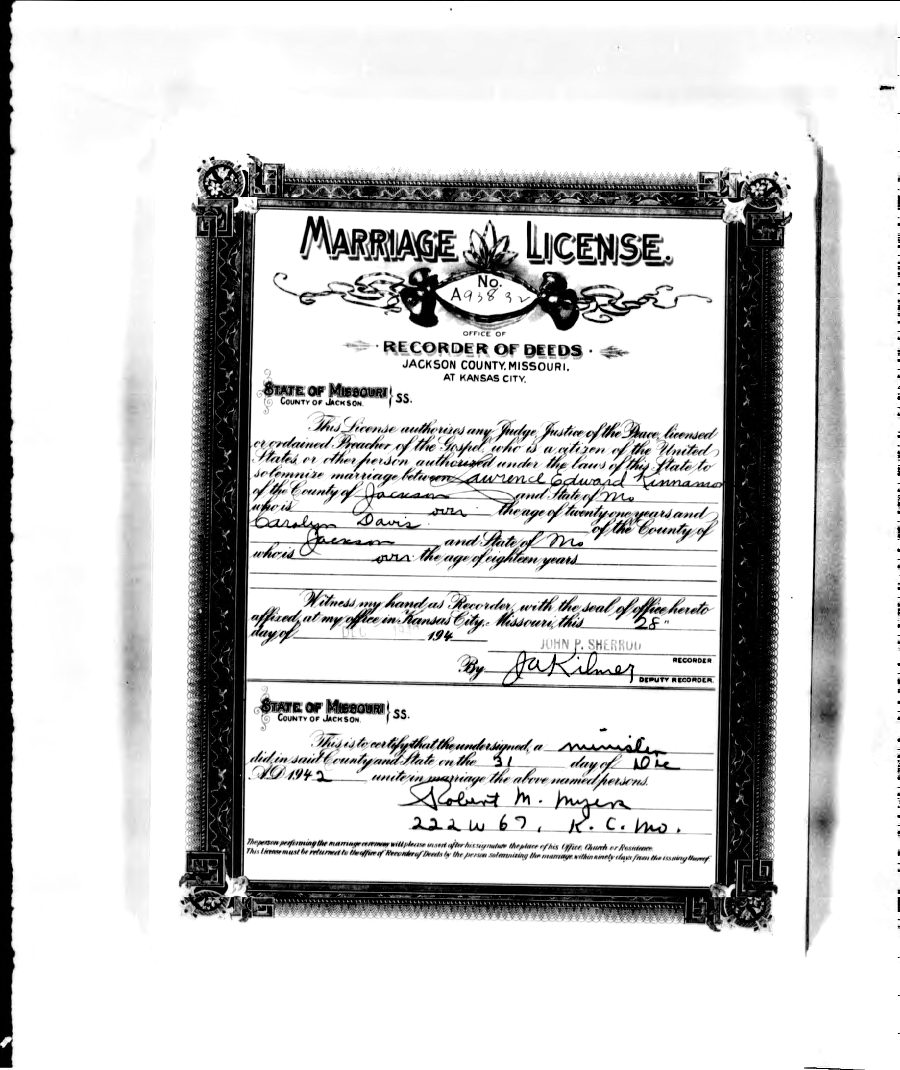 MARRIAGE LICENSE.
No.
A93832
OFFICE OF
RECORDER OF DEEDS
JACKSON COUNTY, MISSOURI.
AT KANSAS CITY.
STATE OF MISSOURI
COUNTY OF JACKSON. SS.
This License authorizes any Judge, Justice of the Peace, licensed
or ordained Preacher of the Gospel, who is a citizen of the United
States, or other person authorized under the laws of this State, to
solemnize marriage between Lawrence Edward Kinnamo
of the County of Jackson and State of Mo
who is over the age of twenty one years and
Carolyn Davis of the County of
Jackson and State of Mo
who is over the age of eighteen years
Witness my hand as Recorder, with the seal of office hereto
affixed, at my office in Kansas City, Missouri, this 28"
day of DEC 194
JOHN P. SHERROD
RECORDER
By J A Kilmer
DEPUTY RECORDER.
STATE OF MISSOURI
COUNTY OF JACKSON. SS.
This is to certify that the undersigned, a minister
did, in said County and State on the 31 day of Dec
A.D. 1942 unite in marriage the above named persons.
Robert M. Myers
222 W 67, K. C. Mo.
The person performing the marriage ceremony will please insert after his signature the place of his Office, Church or Residence.
This License must be returned to the office of Recorder of Deeds by the person solemnizing the marriage within ninety days from the issuing thereof.